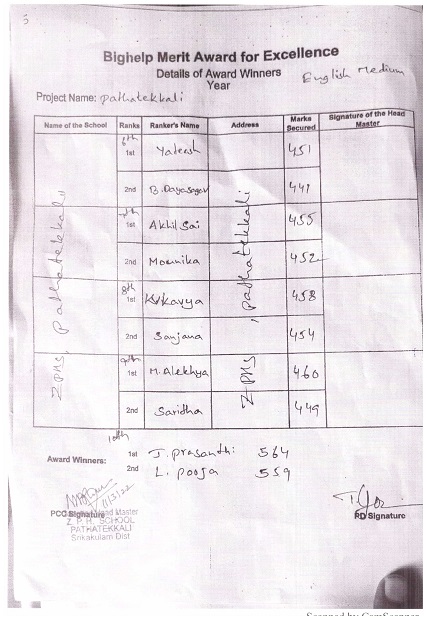 5
Bighelp Merit Award for Excellence
Details of Award Winners
English Medium
Year
Project Name: pathatekkali
Name of the School Ranks Ranker's Name Address Marks Secured Signature of the Head Master
ZPHS, pathatekkali
ZPHS, pathatekkali
6th
1st Yateesh 451
2nd B. Dayasagar 441
7th
1st Akhil Sai 455
2nd Mounika 452
8th
1st K. Kavya 458
2nd Sanjana 454
9th
1st M. Alekhya 460
2nd Saridha 449
10th
Award Winners: 1st J. prasanthi 564
2nd L. pooja 559
PCO Signature Head Master
Z. P. H. SCHOOL
PATHATEKKALI
Srikakulam Dist
PD Signature
Scanned by CamScanner